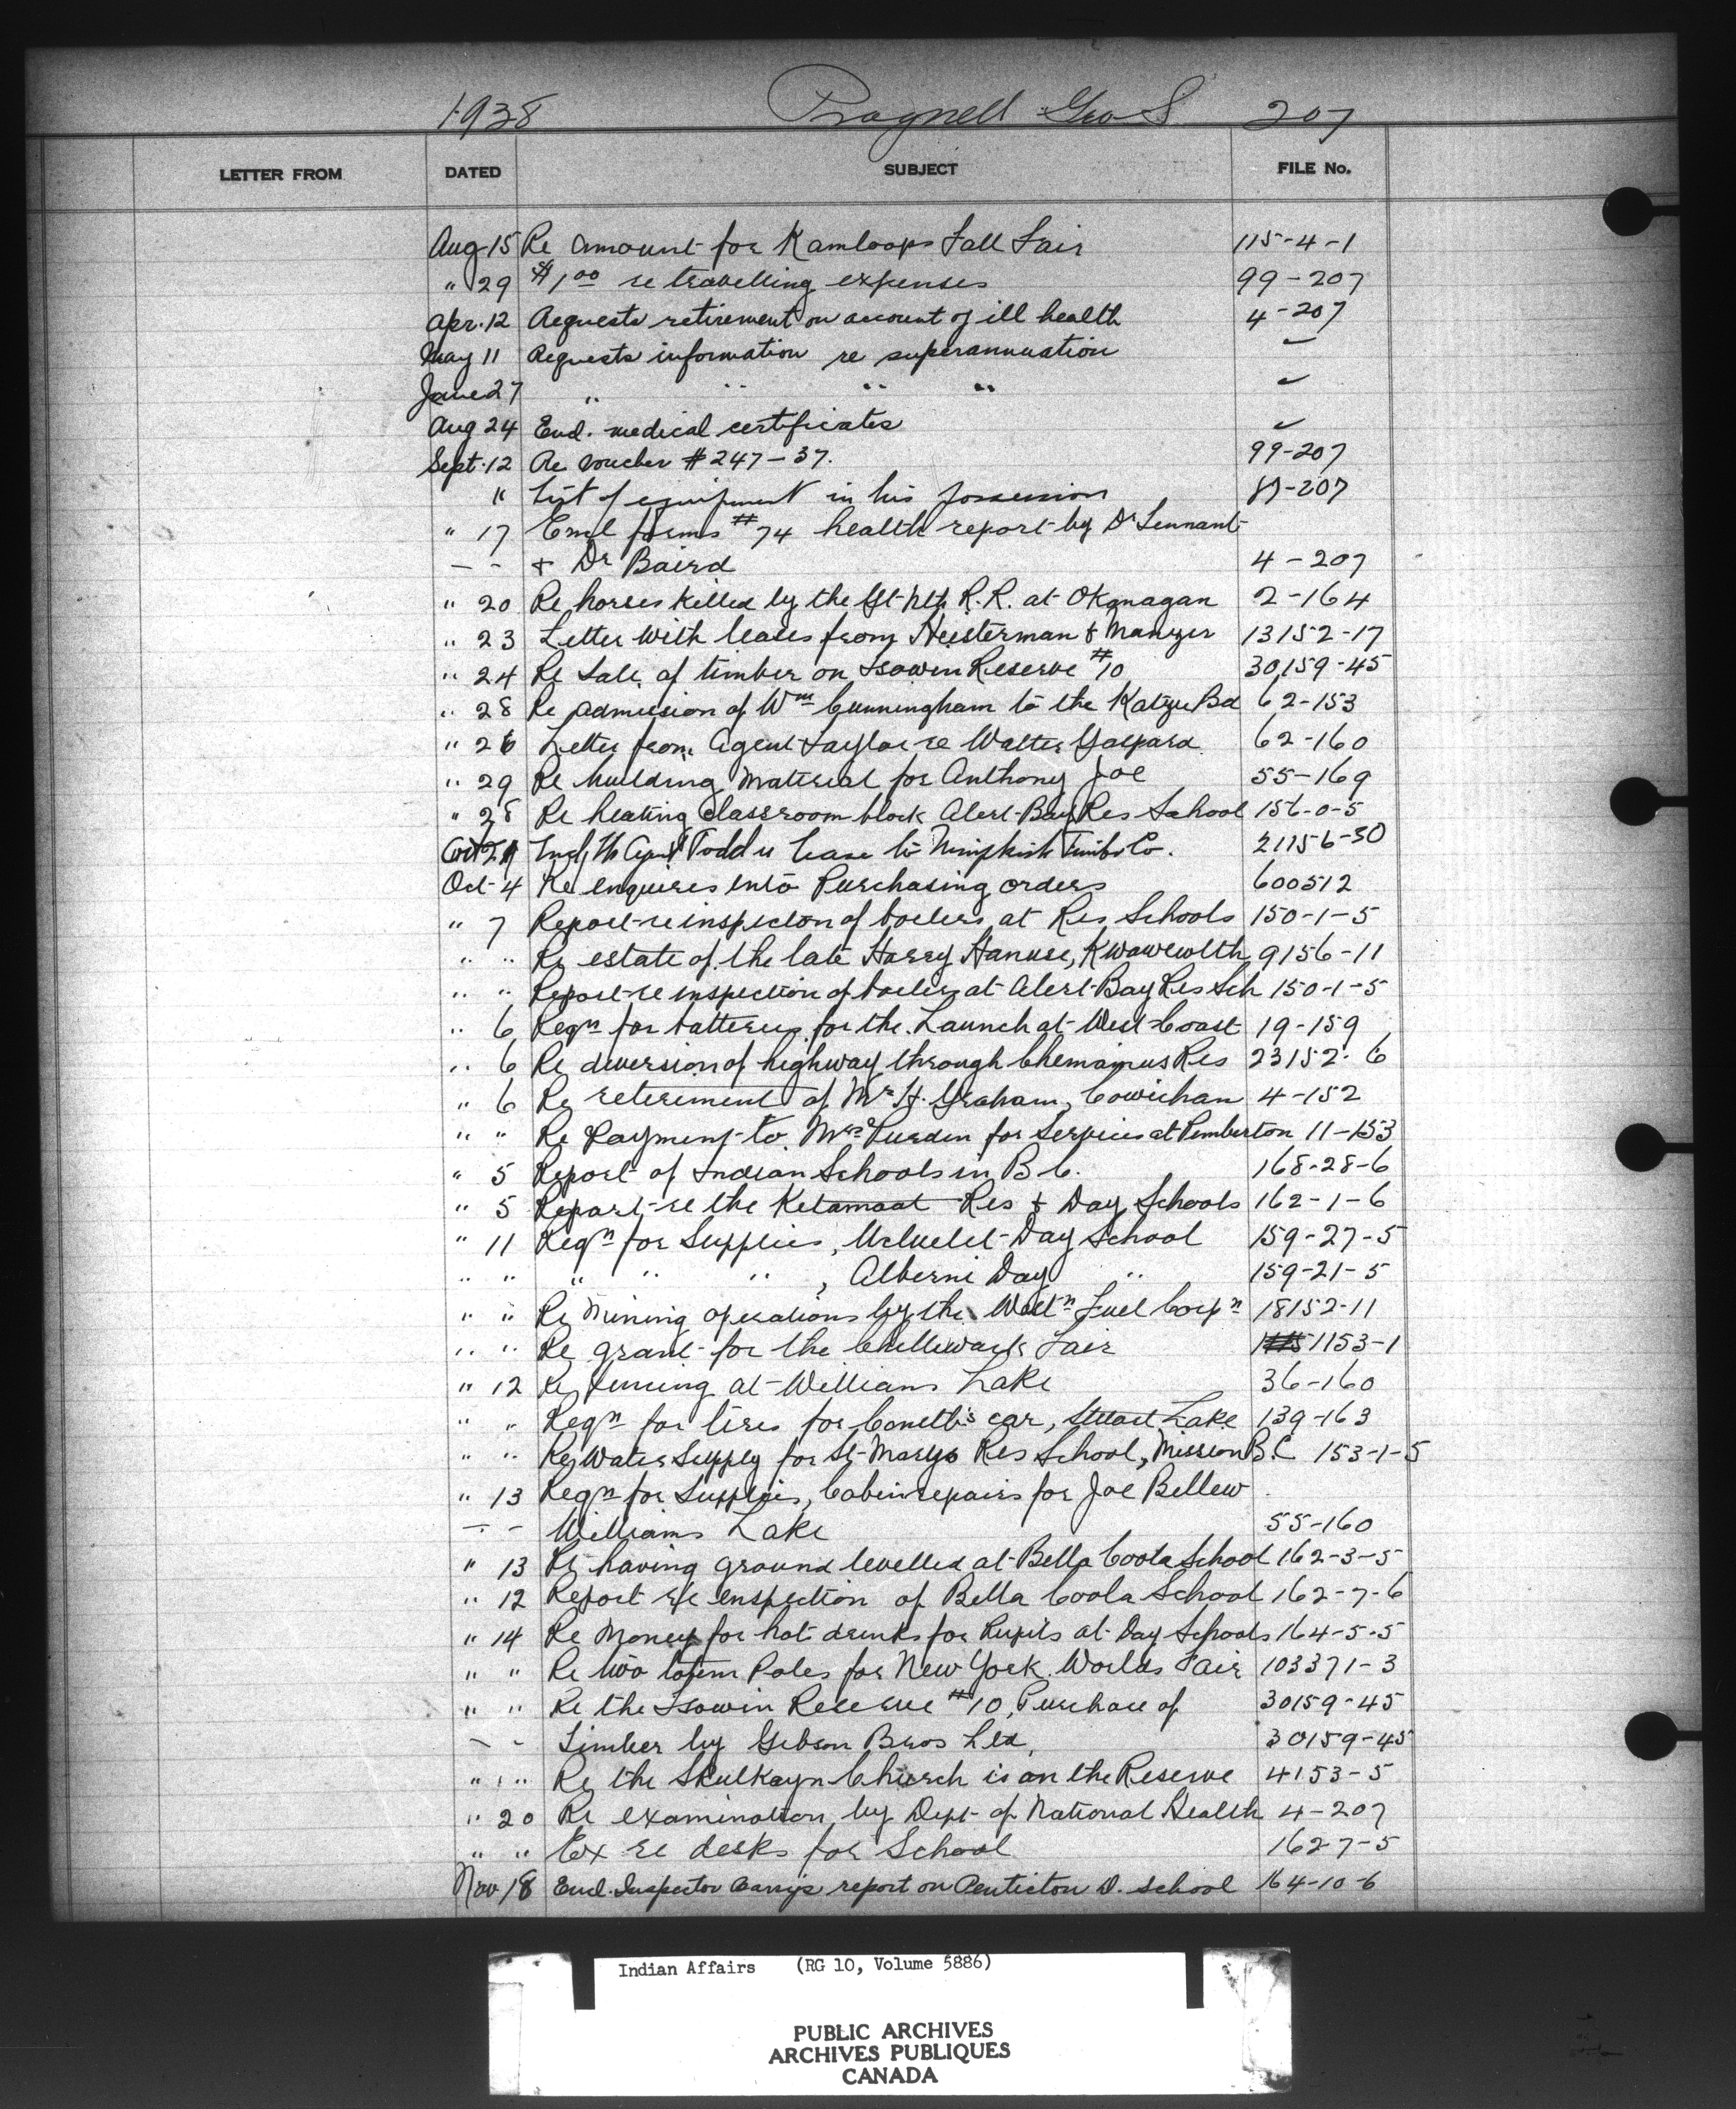 1938 Pragnell Geo S 207
LETTER FROM DATED SUBJECT FILE No.
Aug-15 Re amount for Kamloops Fall Fair 115-4-1
" 29 $1.00 re travelling expenses 99-207
Apr. 12 Requests retirement on account of ill health 4-207
May 11 Requests information re superannuation "
June 27 " " " " "
Aug 24 Encl. medical certificates "
Sept. 12 Re voucher # 247-37. 99-207
" List of equipment in his possession 87-207
" 17 Encl forms #74 health report by Dr Lennant
- - + Dr Baird 4-207
" 20 Re horses killed by the Gt-Nth R.R. at Okanagan 2-164
" 23 Letter with leases from Heisterman & 13152-17
" 24 Re Sale of timber on Isowin Reserve #10 30159-45
" 28 Re admission of Wm Cunningham to the Katzie Bd 62-153
" 26 Letter from Agent Taylor re Walter Gaspard 62-160
" 29 Re building material for Anthony Joe 55-169
" 28 Re heating classroom block Alert-Bay Res School 156-0-5
Agent Todd re lease to Nimpkish Timber Co. 21156-30
Oct-4 Re enquires into Purchasing orders 600512
" 7 Report-re inspection of boilers at Res Schools 150-1-5
" " Re estate of the late Harry Hanuse, Kwawewlth 9156-11
" " Report-re inspection of boilers at Alert-Bay Res Sch 150-1-5
" 6 Reqn for batteries for the Launch at West-Coast 19-159
" 6 Re diversion of highway through Chemainus Res 23152-6
" 6 Re reteriment of Mr H. Graham, Cowichan 4-152
" " Re Payment-to Mrs Purden for Services at Pemberton 11-153
" 5 Report-of Indian Schools in B.C. 168-28-6
" 5 Report-re the Ketamaat Res & Day Schools 162-1-6
" 11 Reqn for Supplies, Ucluelet-Day School 159-27-5
" " " " " , Alberni Day " 159-21-5
" " Re Mining operations by the Westn Fuel Corpn 18152-11
" " Re grant-for the Chilliwack Fair 1153-1
" 12 Re fencing at-Williams Lake 36-160
" " Reqn for tires for Constb's car, Stuart Lake 139-163
" " Re Water Supply for St-Marys Res School, Mission B.C 153-1-5
" 13 Reqn for Supplies, Cabin repairs for Joe Bellew
- - Williams Lake 55-160
" 13 Re having ground levelled at-Bella Coola School 162-3-5
" 12 Report re inspection of Bella Coola School 162-7-6
" 14 Re Money for hot drinks for Pupils at Day Schools 164-5-5
" " Re two totem Poles for New York Worlds Fair 103371-3
" " Re the Isowin Reserve #10, Purchase of 30159-45
- - Timber by Gibson Bros Ltd, 30159-45
" " Re the Skulkayn Church is on the Reserve 4153-5
" 20 Re examination by Dept-of National Health 4-207
" " Ex re desks for School 162-7-5
Nov 18 Encl. Inspector Barry's report on Penticton D. School 164-10-6
Indian Affairs (RG 10, Volume 5886)
PUBLIC ARCHIVES
ARCHIVES PUBLIQUES
CANADA